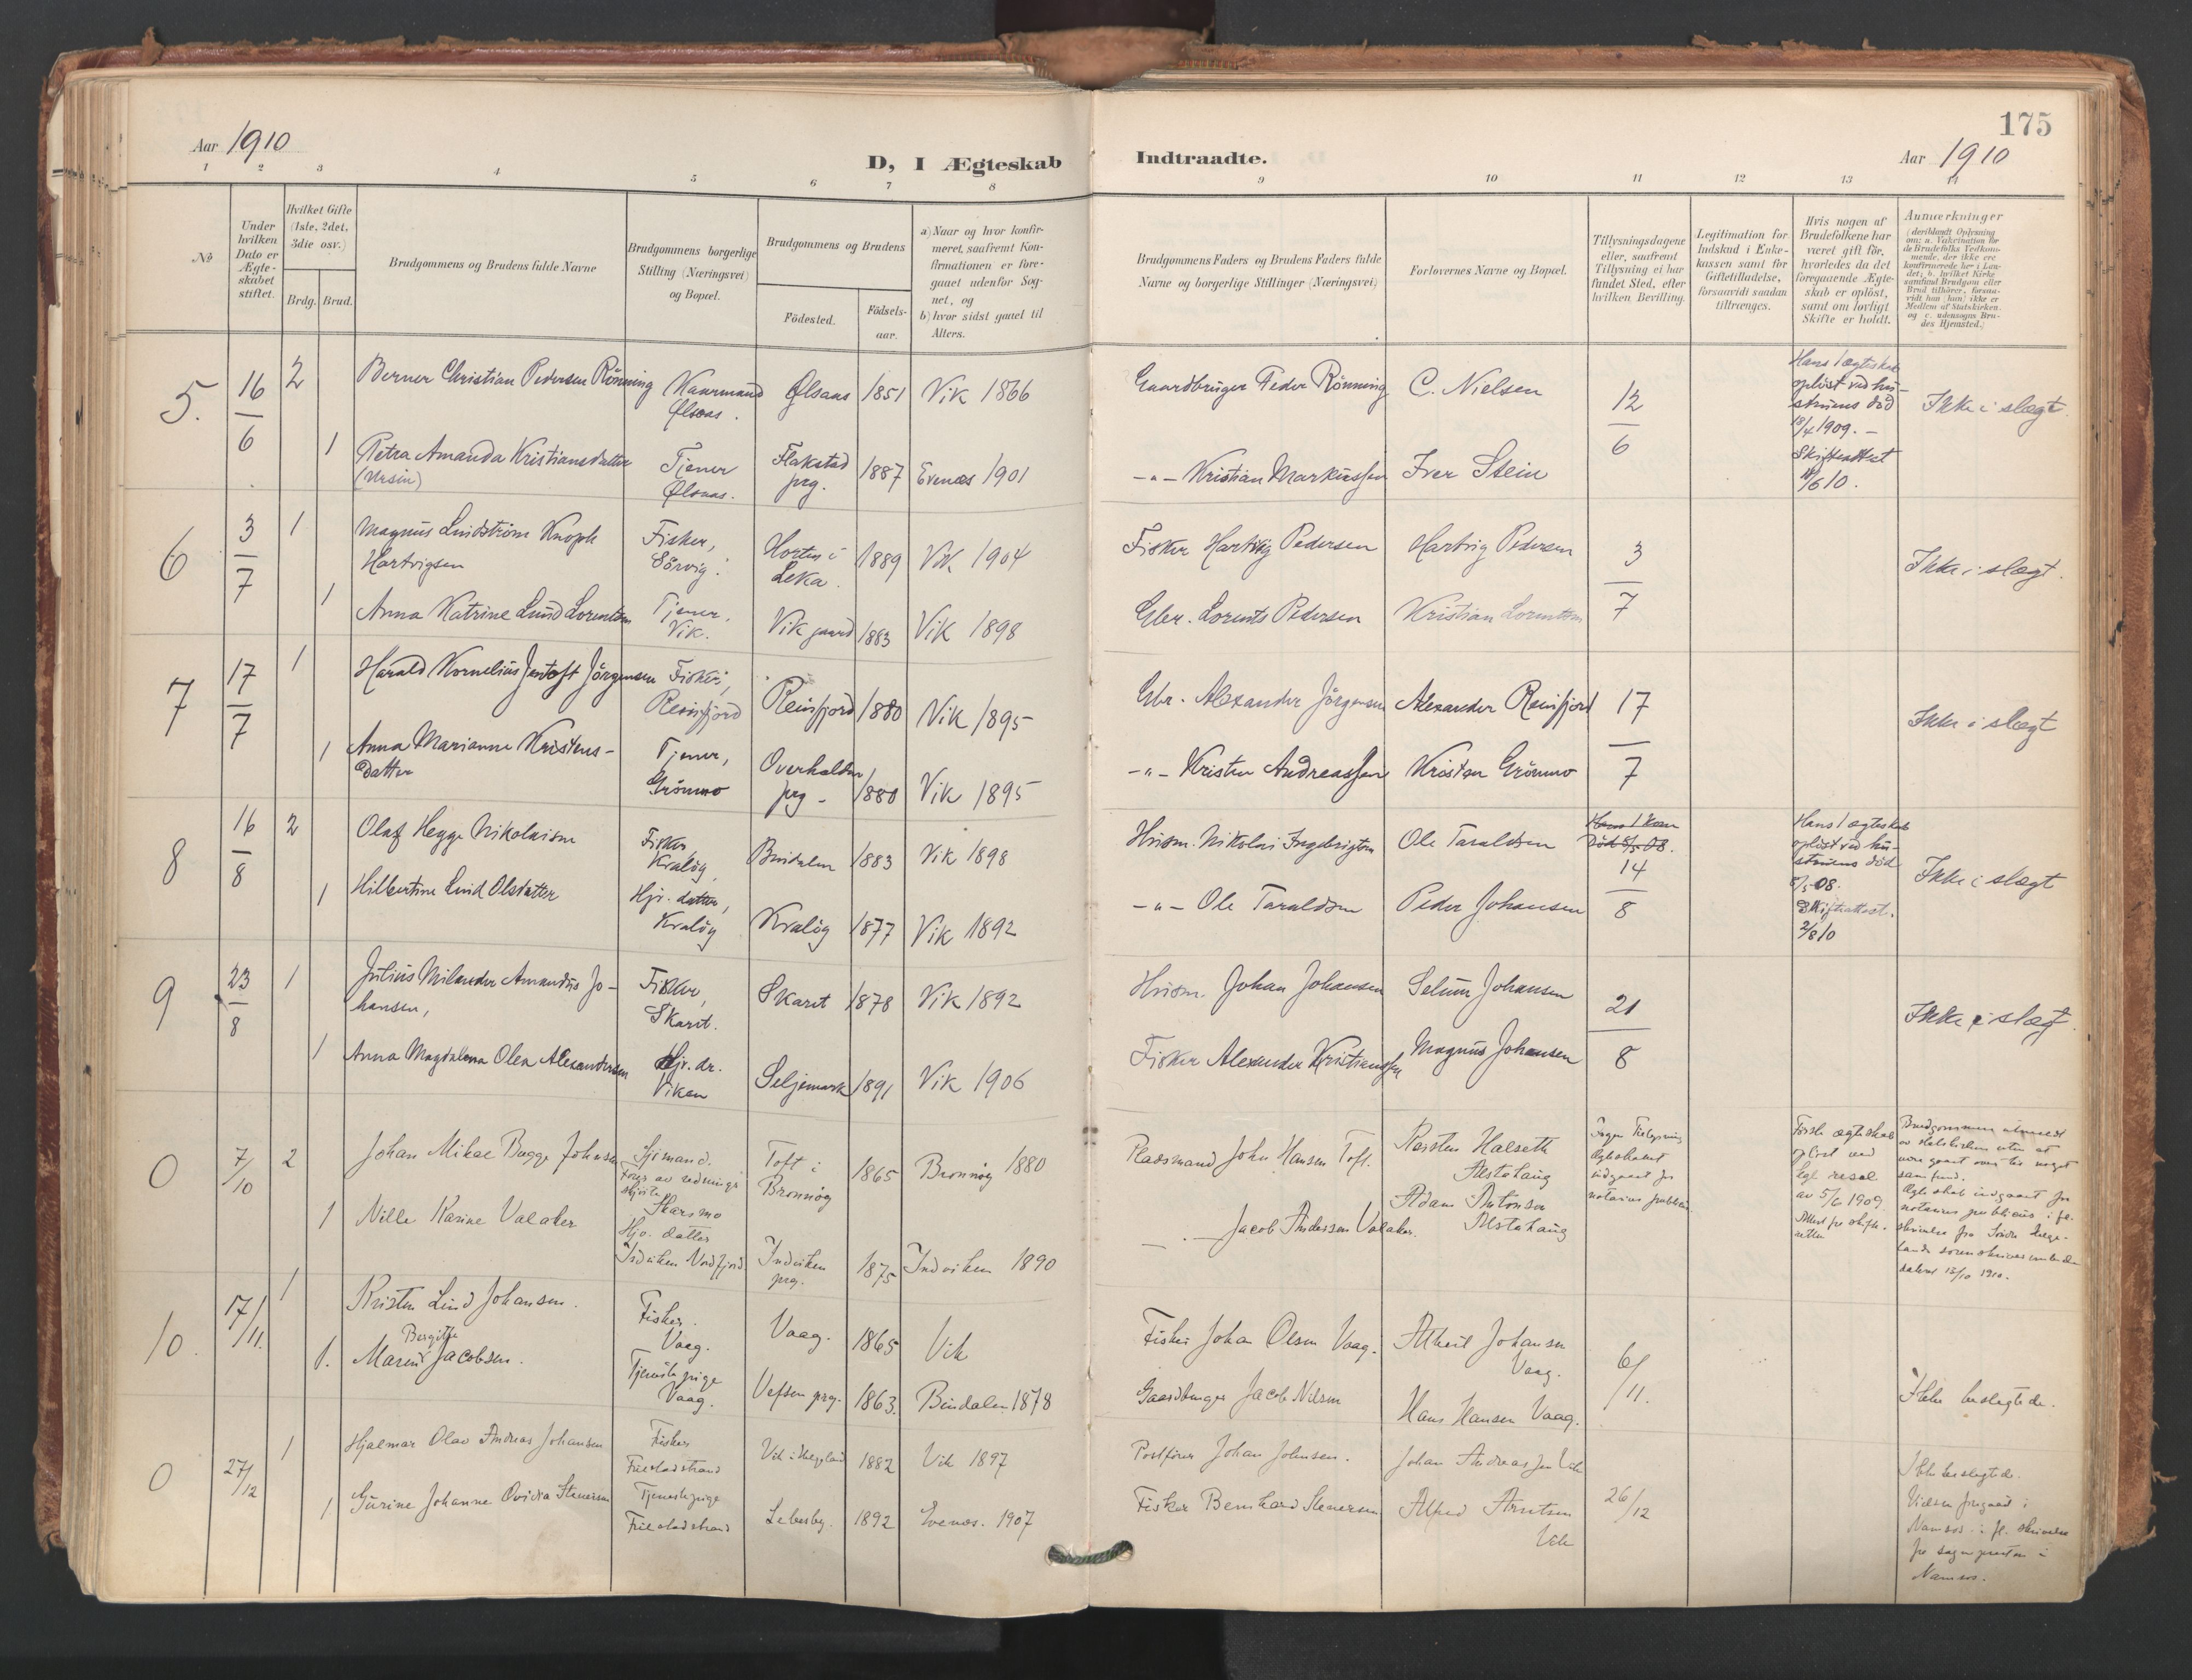 175
Aar 1910
D, I Ægteskab
Indtraadte.
Aar 1910
1 2 3 4 5 6 7 8 9 10 11 12 13 14
No
Under hvilken Dato er Ægteskabet stiftet.
Hvilket Gifte (1ste, 2det, 3die osv.)
Brdg. Brud.
Brudgommens og Brudens fulde Navne
Brudgommens borgerlige Stilling (Næringsvei) og Bopæl.
Brudgommens og Brudens
Födested.
Födselsaar.
a) Naar og hvor konfirmeret, saafremt Konfirmationen er foregaaet udenfor Sognet, og
b) hvor sidst gaaet til Alters.
Brudgommens Faders og Brudens Faders fulde Navne og borgerlige Stillinger (Næringsvei)
Forlovernes Navne og Bopæl.
Tillysningsdagene eller, saafremt Tillysning ei har fundet Sted, efter hvilken Bevilling.
Legitimation for Indskud i Enkekassen samt for Giftetilladelse, forsaavidt saadan tiltrænges.
Hvis nogen af Brudefolkene har været gift för, hvorledes da det foregaaende Ægteskab er oplöst, samt om lovligt Skifte er holdt.
Anmærkninger (deriblandt Oplysning om: a. Vakcination for de Brudefolks Vedkommende, der ikke ere konfirmerede her i Landet; b. hvilket Kirkesamfund Brudgom eller Brud tilhörer, forsaavidt han (hun) ikke er Medlem af Statskirken, og c. udensogns Brudes Hjemsted.)
5. 16/6 2 Berner Christian Pedersen Rönning
Ølsaas. Ølsaas 1851 Vik 1866
Gaardbruger Peder Rönning C. Nielsen 12/6
Hans 1 ægteskab opløst ved hustruens død 18/4 1909. - Skifteattest 11/6 10.
Ikke i slægt.
1 Petra Amanda Kristiansdatter (Ursin)
Tjener Ølsaas. Flakstad prg. 1887 Evenæs 1901
-"- Kristian Markussen Iver Stein
6 3/7 1 Magnus Lindström Knoph Hartvigsen
Fisker, Sörvig. Horten i Leka. 1889 Vik 1904
Fisker Hartvig Pedersen Hartvig Pedersen 3/7
Ikke i slægt.
1 Anna Katrine Lund Lorentsen
Tjener, Vik. Vik gaard 1883 Vik 1898
Gbr. Lorents Pedersen Kristian Lorentsen
7 17/7 1 Harald Kornelius Jentoft Jörgensen
Fisker, Reinfjord Reinfjord 1880 Vik 1895
Gbr. Alexander Jörgensen Alexander Reinfjord 17/7
Ikke i slægt
1 Anna Marianne Kristensdatter
Tjener, Grönmo Overhalden prg - 1880 Vik 1895
-"- Kristen Andreassen Kristen Grönmo
8 16/8 2 Olaf Hegge Nikolaisen
Fisker, Kraløy, Bindalen 1883 Vik 1898
Husm. Nikolai Ingebrigtsen Ole Taraldsen
Hans 1 kone død 8/5-08. 14/8
Hans 1 ægteskab opløst ved hustruens død 8/5-08. Skifteattest. 2/8 10
Ikke i slægt
1 Hilbertine Lind Olsdatter
Hjv. datter, Kraløy Kraløy 1877 Vik 1892
-"- Ole Taraldsen Peder Johansen
9 23/8 1 Julius Milander Amandus Johansen,
Fisker, Skaret. Skaret 1878 Vik 1892
Husm. Johan Johansen Selmer Johansen 21/8
Ikke i slægt.
1 Anna Magdalena Olea Alexandersen
Hjv. dr. Viken Seljemark 1891 Vik 1906
Fisker Alexander Kristiansen Magnus Johansen
0 7/10 2 Johan Mikal Bugge Johnsen
Sjömand. Förer av rednings skjöite Skarsmo
Toft i Brønnøy 1865 Brønnøy 1880
Pladsmand John Hansen Toft. Karsten Halseth Alstahaug
Ingen Tillysning Ægteskabet indgaaet for notarius publicus
Første ægteskab opløst ved kgl. resol av 5/6 1909. Attest fra skifteretten
Brudgommen utmeldt av statskirken uten at være gaaet over til noget samfund. Ægteskab indgaaet for notarius publicus i fl. skrivelse fra Søndre Helgelands sorenskriverembede dateret 13/10 1910.
1 Nille Karine Valaker
Hjv. datter Indviken Nordfjord Indviken prg. 1875 Indviken 1890
-"- Jacob Andersen Valaker. Adam Antonsen Alstahaug
10. 17/11. 1 Kristen Lind Johansen.
Fisker. Vaag. Vaag. 1865 Vik
Fisker Johan Olsen Vaag. Johansen Vaag. 6/11.
Ikke beslegtede.
1. Maren Bergitte Jacobsen.
Tjenestepige Vaag. Vefsen prg. 1863. Bindalen 1878
Gaardbruger Jacob Nilsen Hans Hansen Vaag.
0 27/12 1 Hjalmar Olav Andreas Johansen
Fisker Vik i Helgeland 1882 Vik 1897
Postfører Johan Johnsen. Johan Andreassen Vik 26/12
Ikke beslegtede. Vielsen foregaad i Namsos i fl. skrivelse fra sognepresten i Namsos.
1 Gurine Johanne Ovidia Stenersen
Tjenestepige Lebesby. 1892 Evenæs. 1907
Fisker Bernhard Stenersen Alfred Arntsen Vik